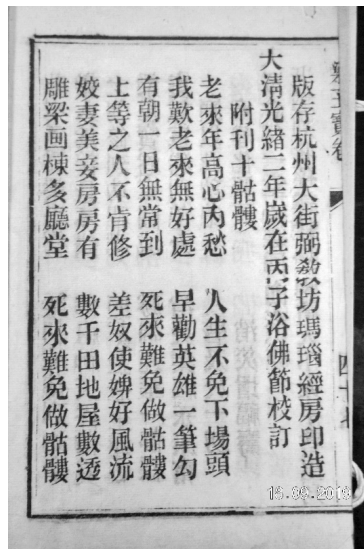 版存杭州大街弼教坊瑪瑙經房印造
大清光緒二年歲在丙子浴佛節校訂
附刊十骷髏
老來年高心內愁　人生不免下場頭
我歎老來無好處　早勸英雄一筆勾
有朝一日無常到　死來難免做骷髏
上等之人不肯修　差奴使婢好風流
姣妻美妾房房有　數千田地屋數透
雕梁画棟多廳堂　死來難免做骷髏
王寶卷
16.09.2016